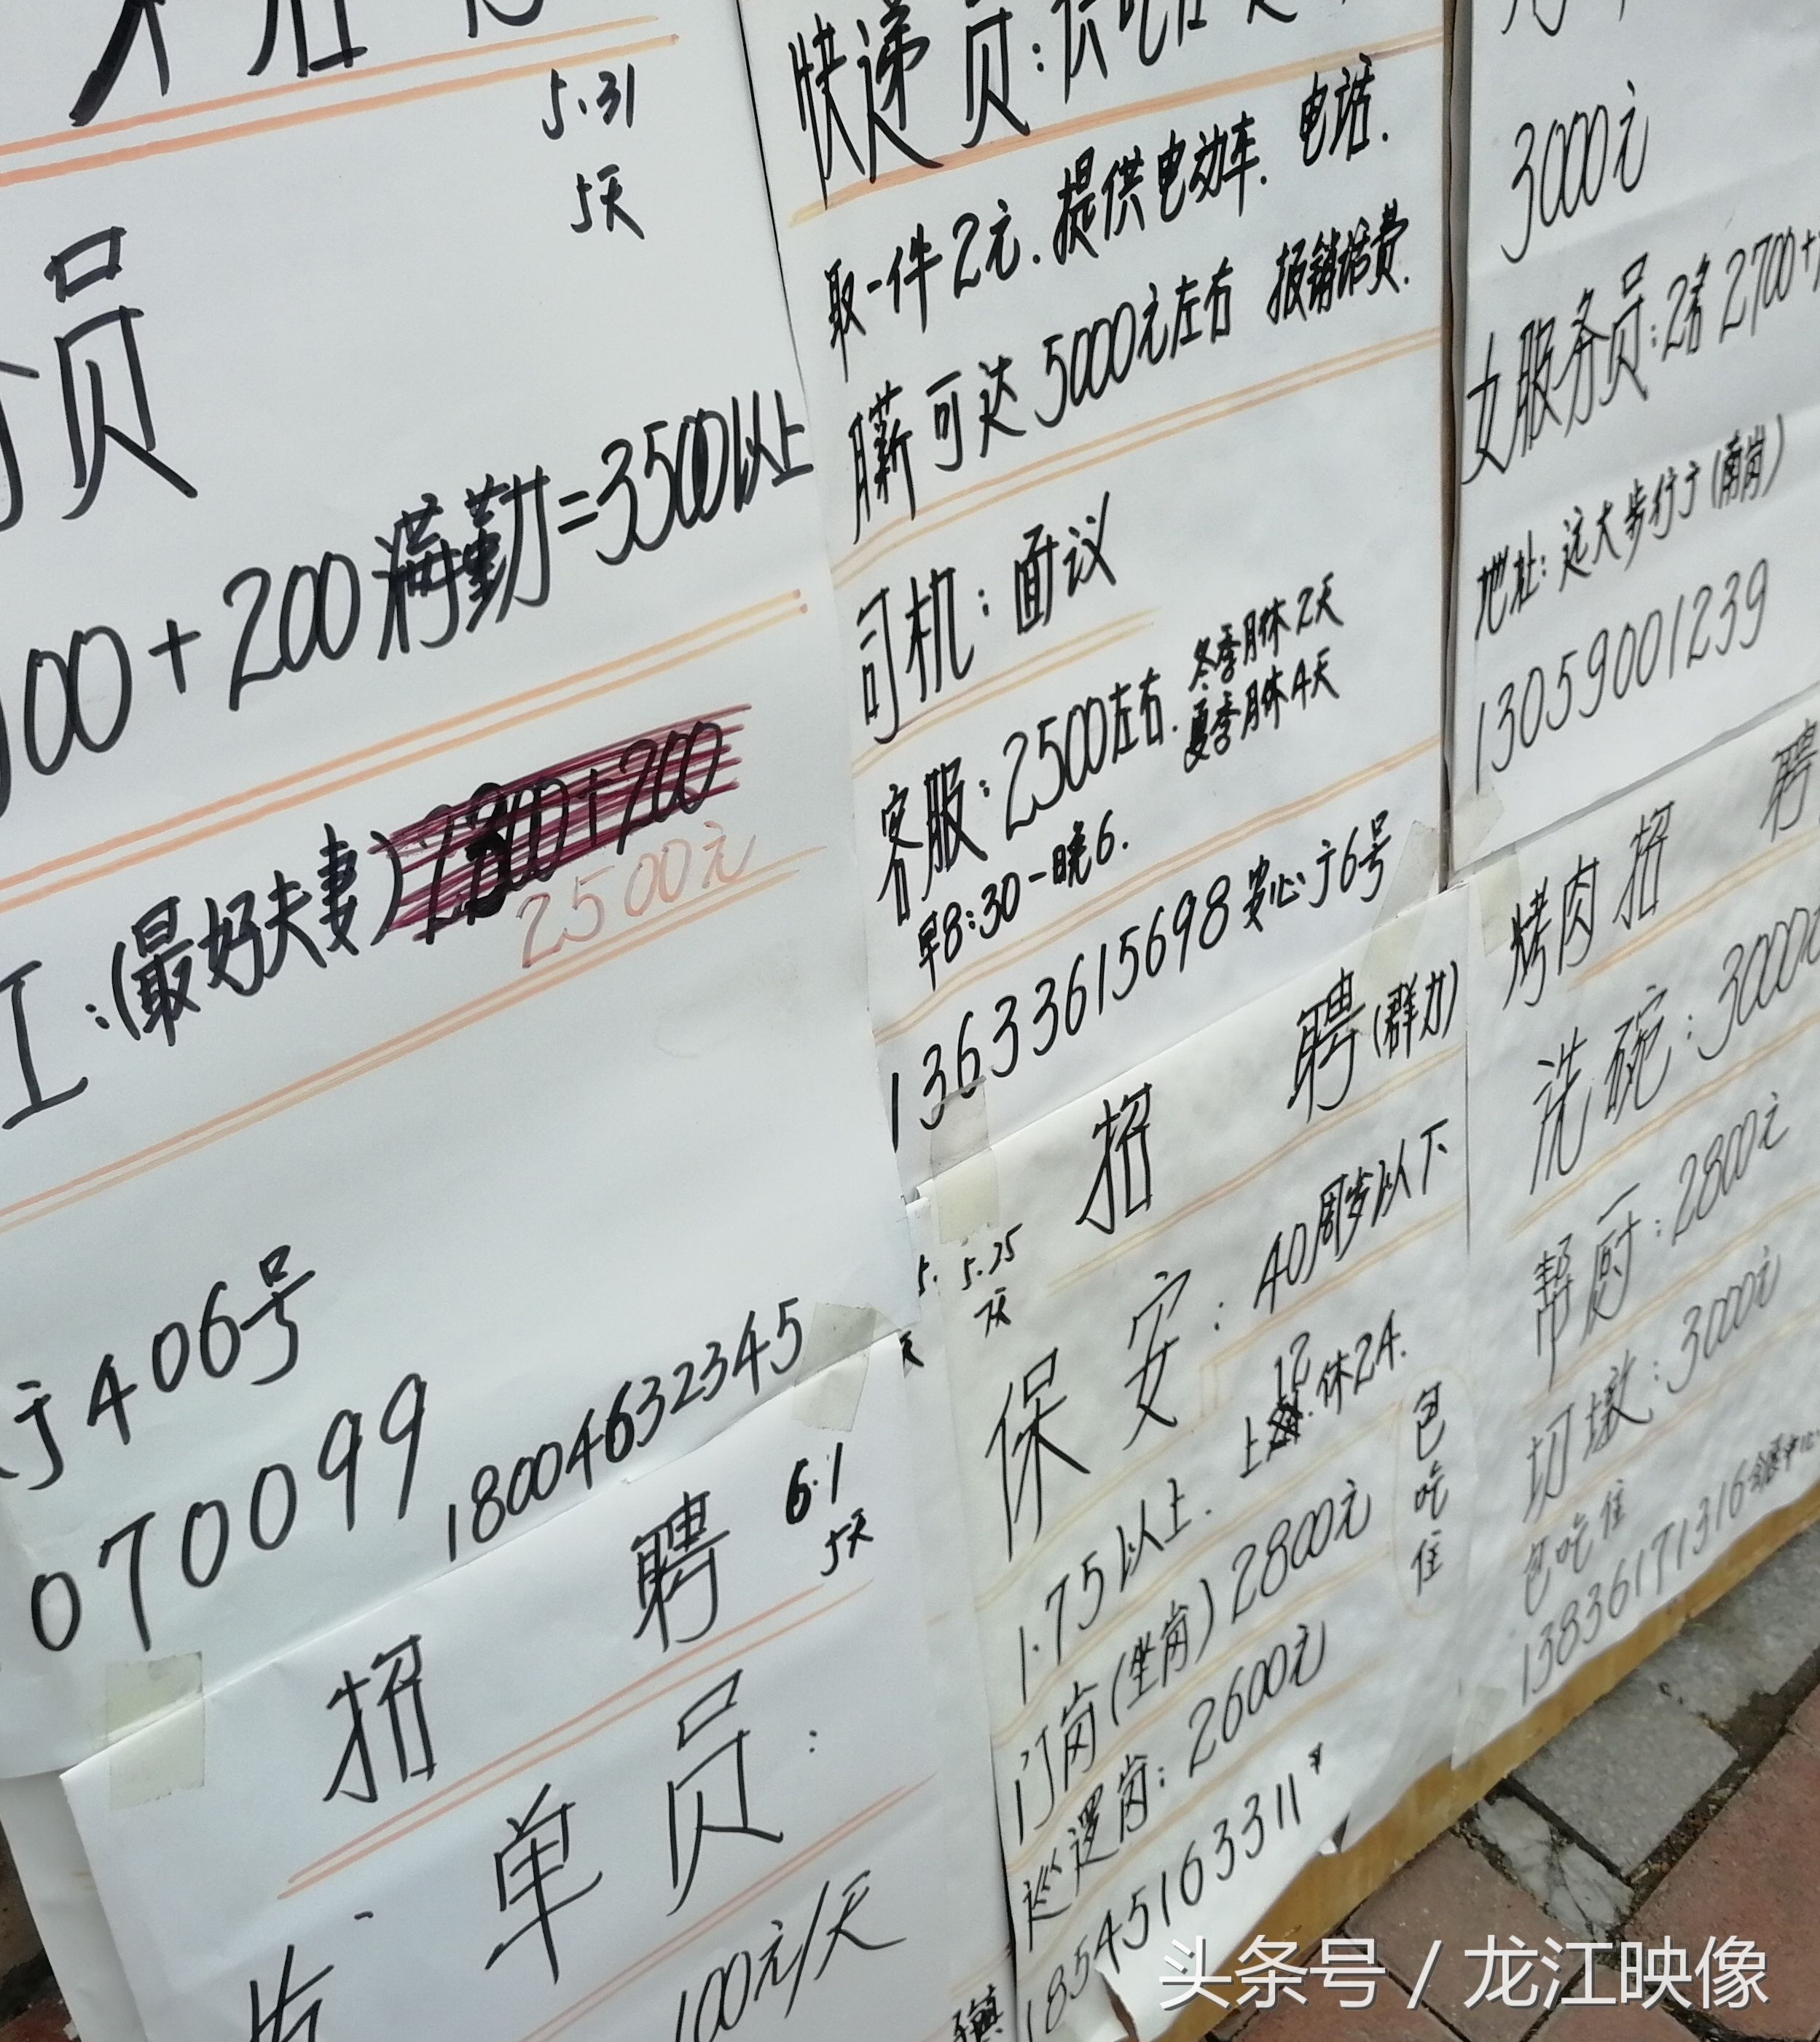 5.31
5天
员
00+200满勤=3500以上
工:(最好夫妻)
2500元
于406号
070099
18004632345
招 聘
6.1
5天
单员:
100元/天
快递员:供吃住
取一件2元.提供电动车.电话.
薪可达5000元左右 报销话费.
司机:面议
客服:2500左右.
冬季月休2天
夏季月休4天
早8:30-晚6.
13633615698安心于6号
招 聘(群力)
5.25
7天
保安:40周岁以下
1.75以上.上12.休24.
门岗(坐岗)2800元
包吃住
巡逻岗:2600元
18545163311
3000元
女服务员:2名2700+
地址:远大步行于(南岗)
13059001239
烤肉招 聘
洗碗:3000
帮厨:2800元
切墩:3000元
包吃住
13836171316会展中心
头条号 / 龙江映像